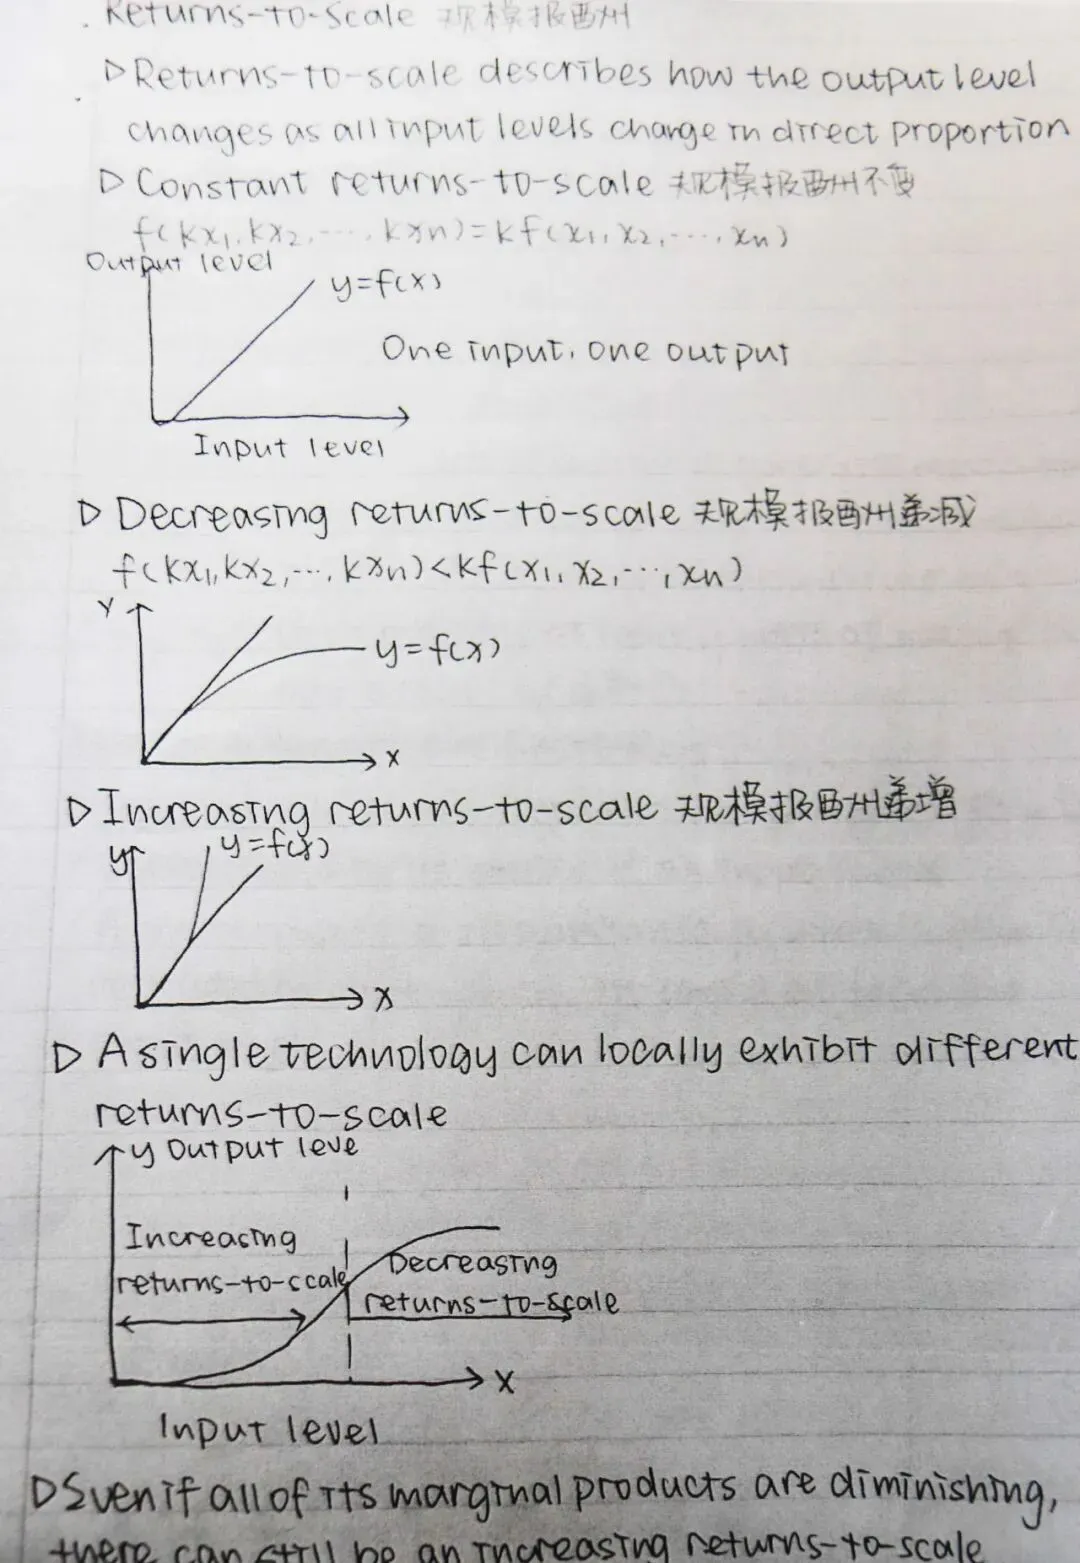 Returns-to-Scale 规模报酬
▷Returns-to-scale describes how the output level
changes as all input levels change in direct proportion
▷ Constant returns-to-scale 规模报酬不变
f(kx₁,kx₂,…,kxn)=kf(x₁,x₂,…,xn)
Output level
y=f(x)
One input, one output
Input level
▷ Decreasing returns-to-scale 规模报酬递减
f(kx₁,kx₂,…,kxn)<kf(x₁,x₂,…,xn)
Y
y=f(x)
x
▷ Increasing returns-to-scale 规模报酬递增
y
y=f(x)
x
▷ A single technology can locally exhibit different
returns-to-scale
y Output leve
Increasing
returns-to-scale
Decreasing
returns-to-scale
x
Input level
▷Even if all of its marginal products are diminishing,
there can still be an increasing returns-to-scale